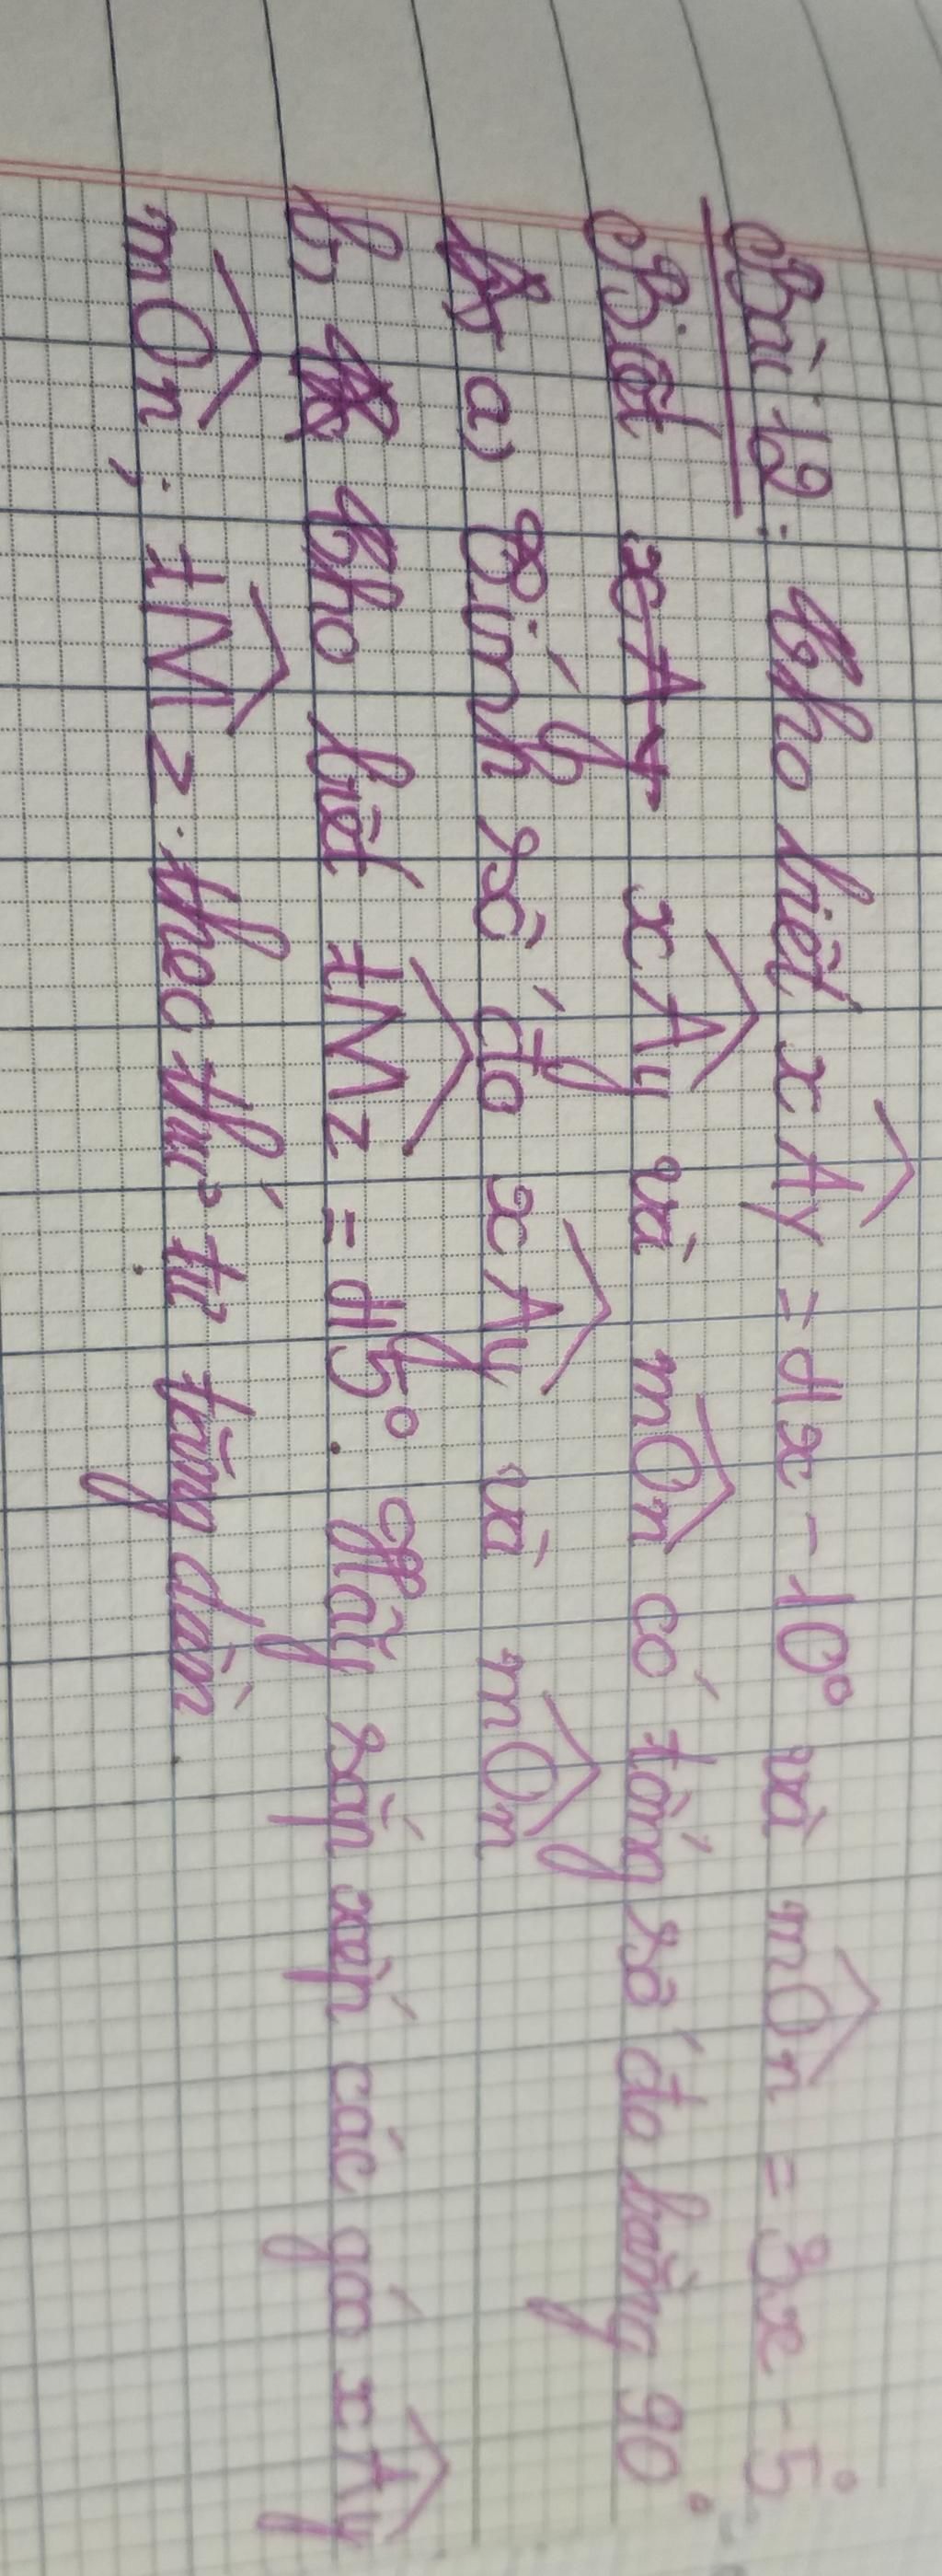 Bài 12: Cho biết xAy = 4x - 10° và mOn = 3x - 5°
Biết xAy xAy và mOn có tổng số đo bằng 90°
a) Tính số đo xAy và mOn
b) Cho biết tMz = 45°. Hãy sắp xếp các góc xAy
mOn; tMz theo thứ tự tăng dần